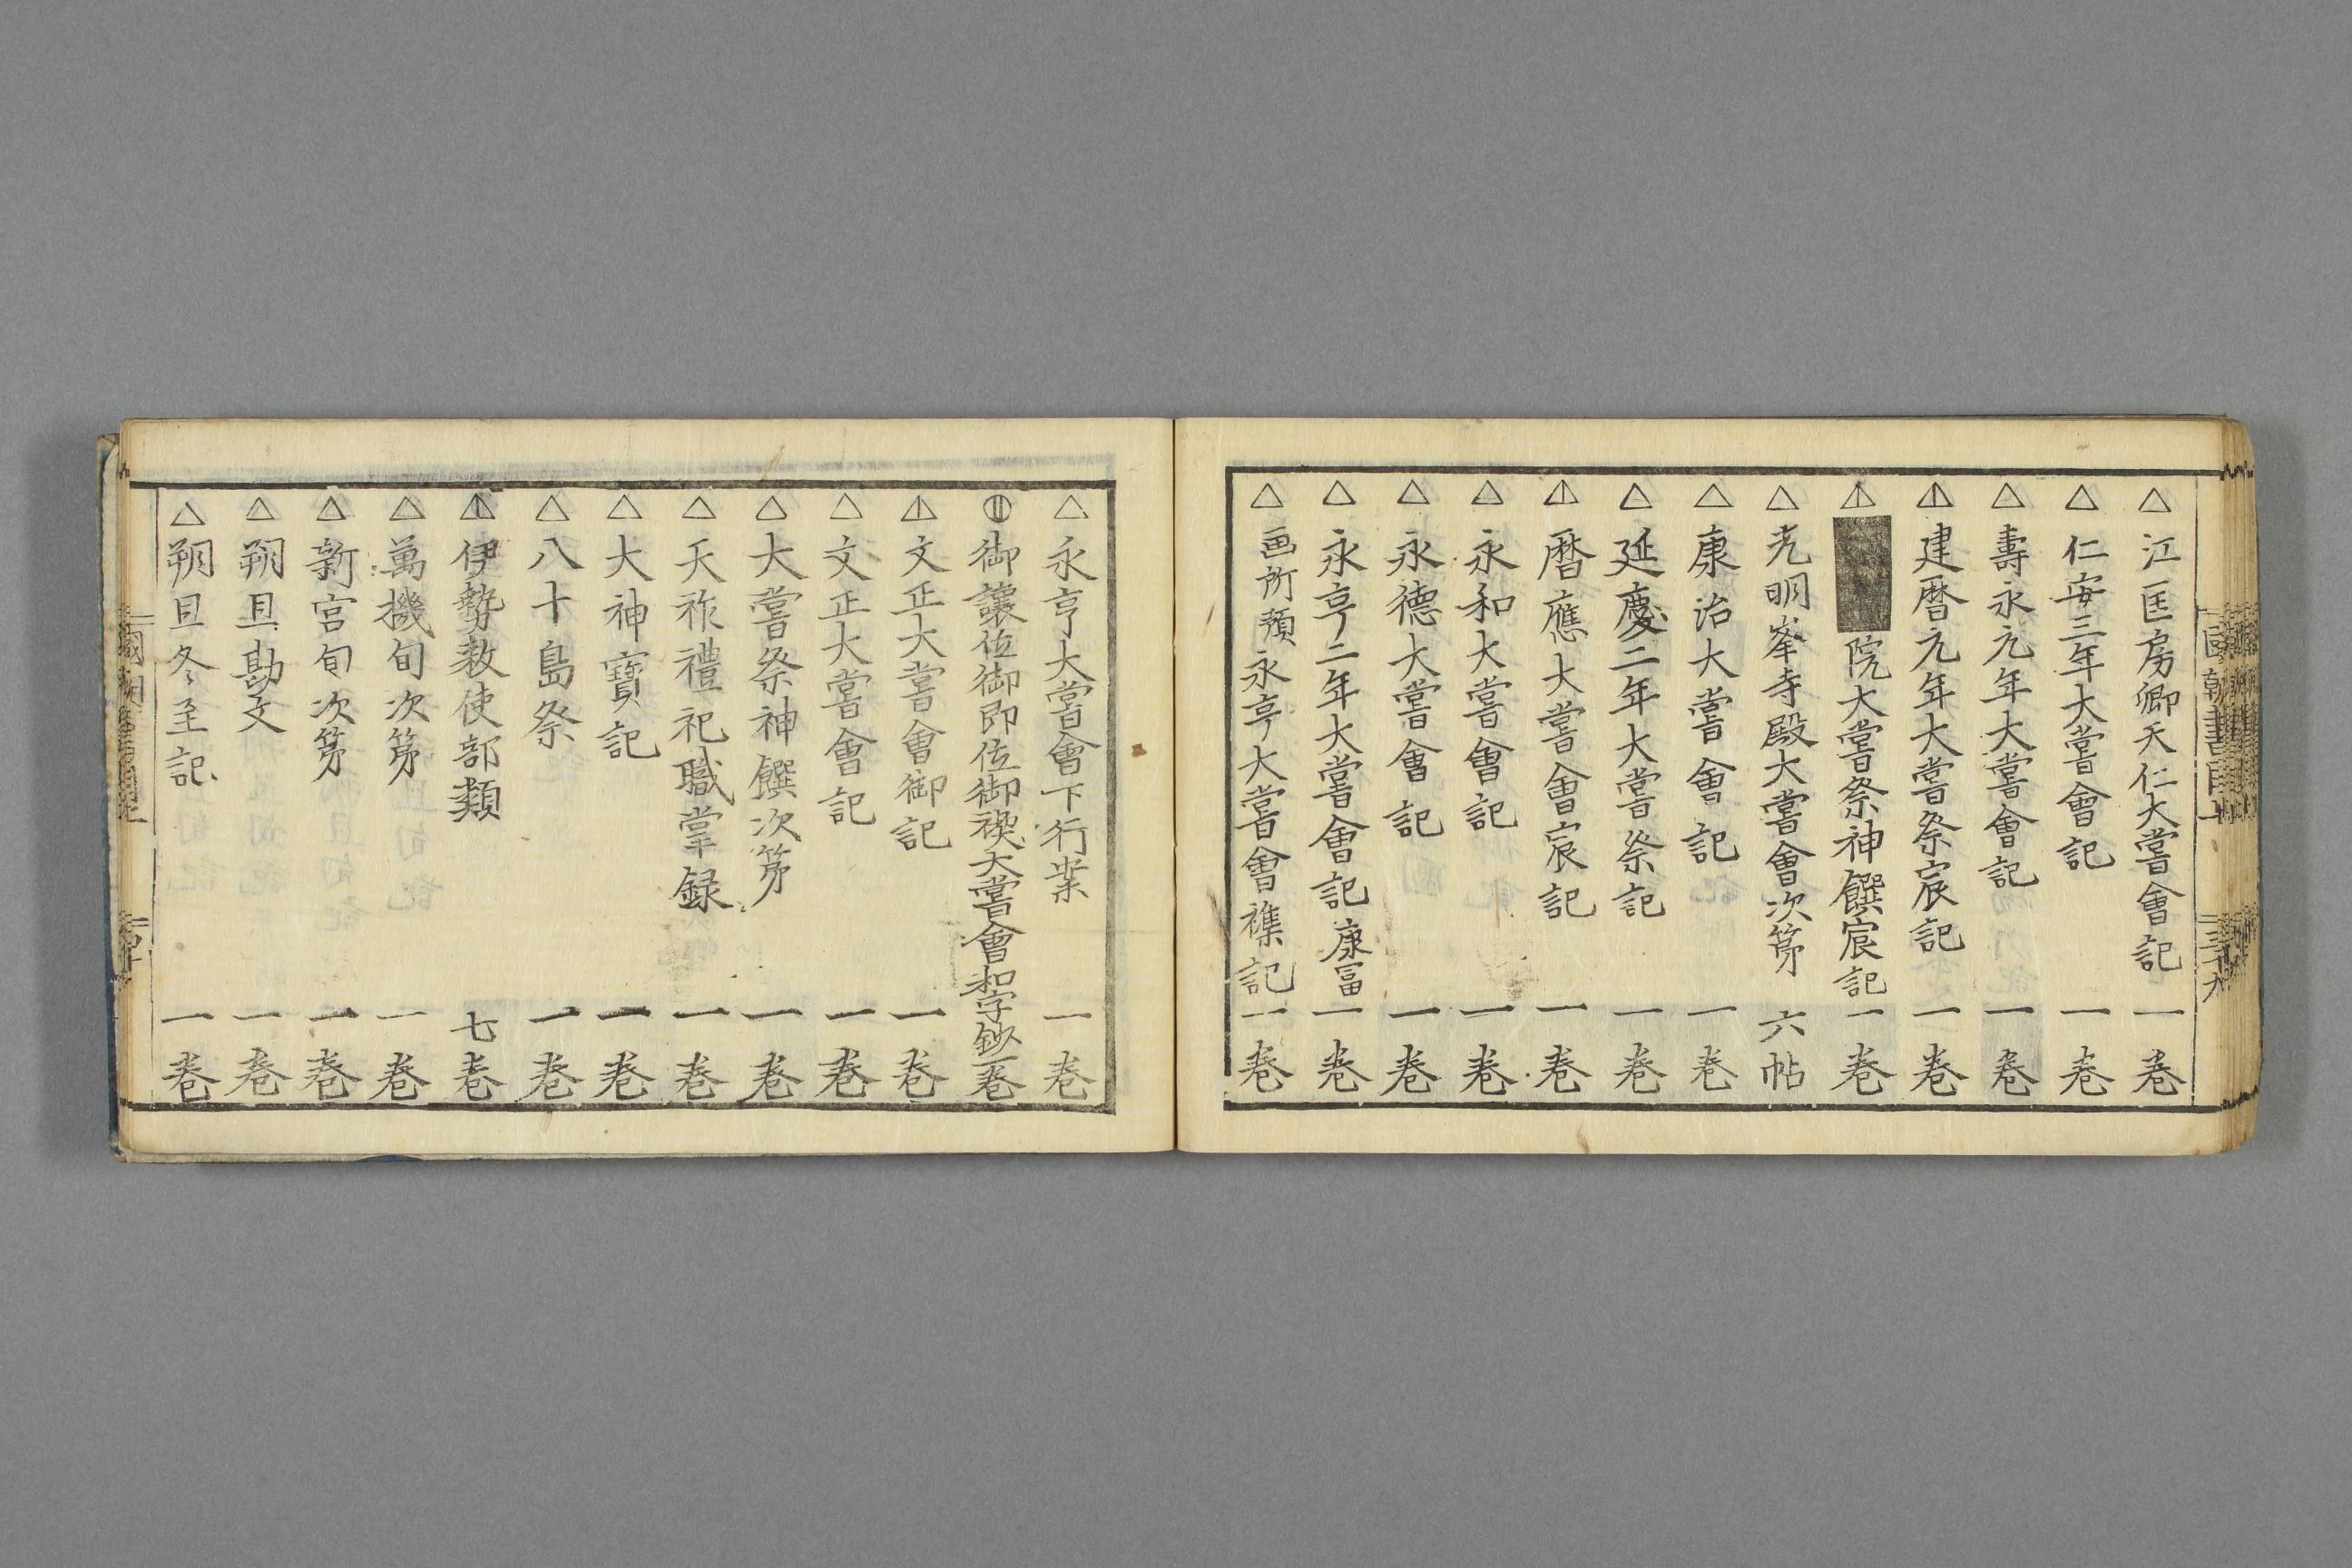 △江匡房卿天仁大嘗會記 一巻
△仁安三年大嘗會記 一巻
△壽永元年大嘗會記 一巻
建暦元年大嘗祭宸記 一巻
院大嘗祭神饌宸記 一巻
△光明峯寺殿大嘗會次第 六帖
△康治大嘗會記 一巻
△延慶二年大嘗祭記 一巻
暦應大嘗會宸記 一巻
△永和大嘗會記 一巻
△永德大嘗會記 一巻
△永享二年大嘗會記 康冨 一巻
△画所預永享大嘗會襍記 一巻
△永亨大嘗會下行業 一巻
御讓位御即位御禊大嘗會和字鈔 一巻
文正大嘗會御記 一巻
△文正大嘗會記 一巻
△大嘗祭神饌次第 一巻
△天祚禮祀職掌録 一巻
△大神寶記 一巻
△八十島祭 一巻
伊勢敕使部類 七巻
△萬機旬次第 一巻
△新宮旬次第 一巻
△朔旦勘文 一巻
△朔旦冬至記 一巻